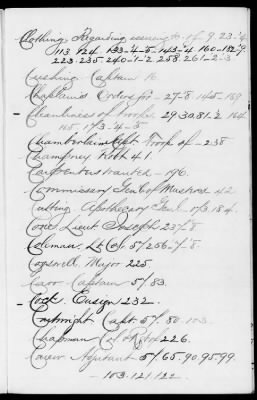 Clothing Regarding issuing to. 17. 9. 23-4
113 124 133-4-5-143-4 160-182-9
223. 235. 240-1-2 258 261-2-3
Cushing Captain 16
Chaplains Orders for - 27-8. 145-159
Cleanliness of Troops 29 30 81-2 164
165. 173-4-5-
Chamberlain Capt Troop of - 238
Champney Robt 41.
Carpenters wanted - 176.
Commissary Genl of Musters 42
Cutting Apothecary Genl 173.184.
Cone Lieut Joseph 237-8
Coleman Lt Col 57 256-7-8.
Cogswell Major 225
Carr Captain 57. 83.
Cock Ensign 232.
Cartwright Capt 57. 80. 103
Chapman 226.
Carew Adjutant 57. 65. 90. 95. 99.
- 103. 121. 122.